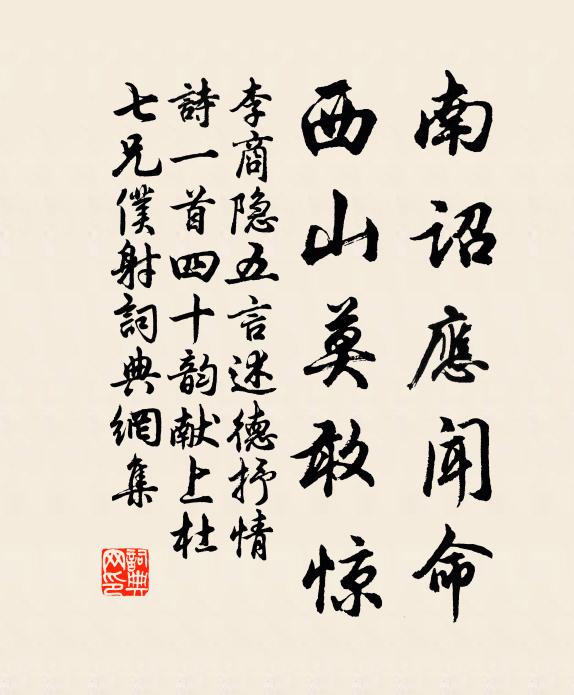 南詔應闻命
西山莫敢惊
李商隐五言述德抒情
詩一首四十韵献上杜
七兄僕射詞典網集
詞典
网印